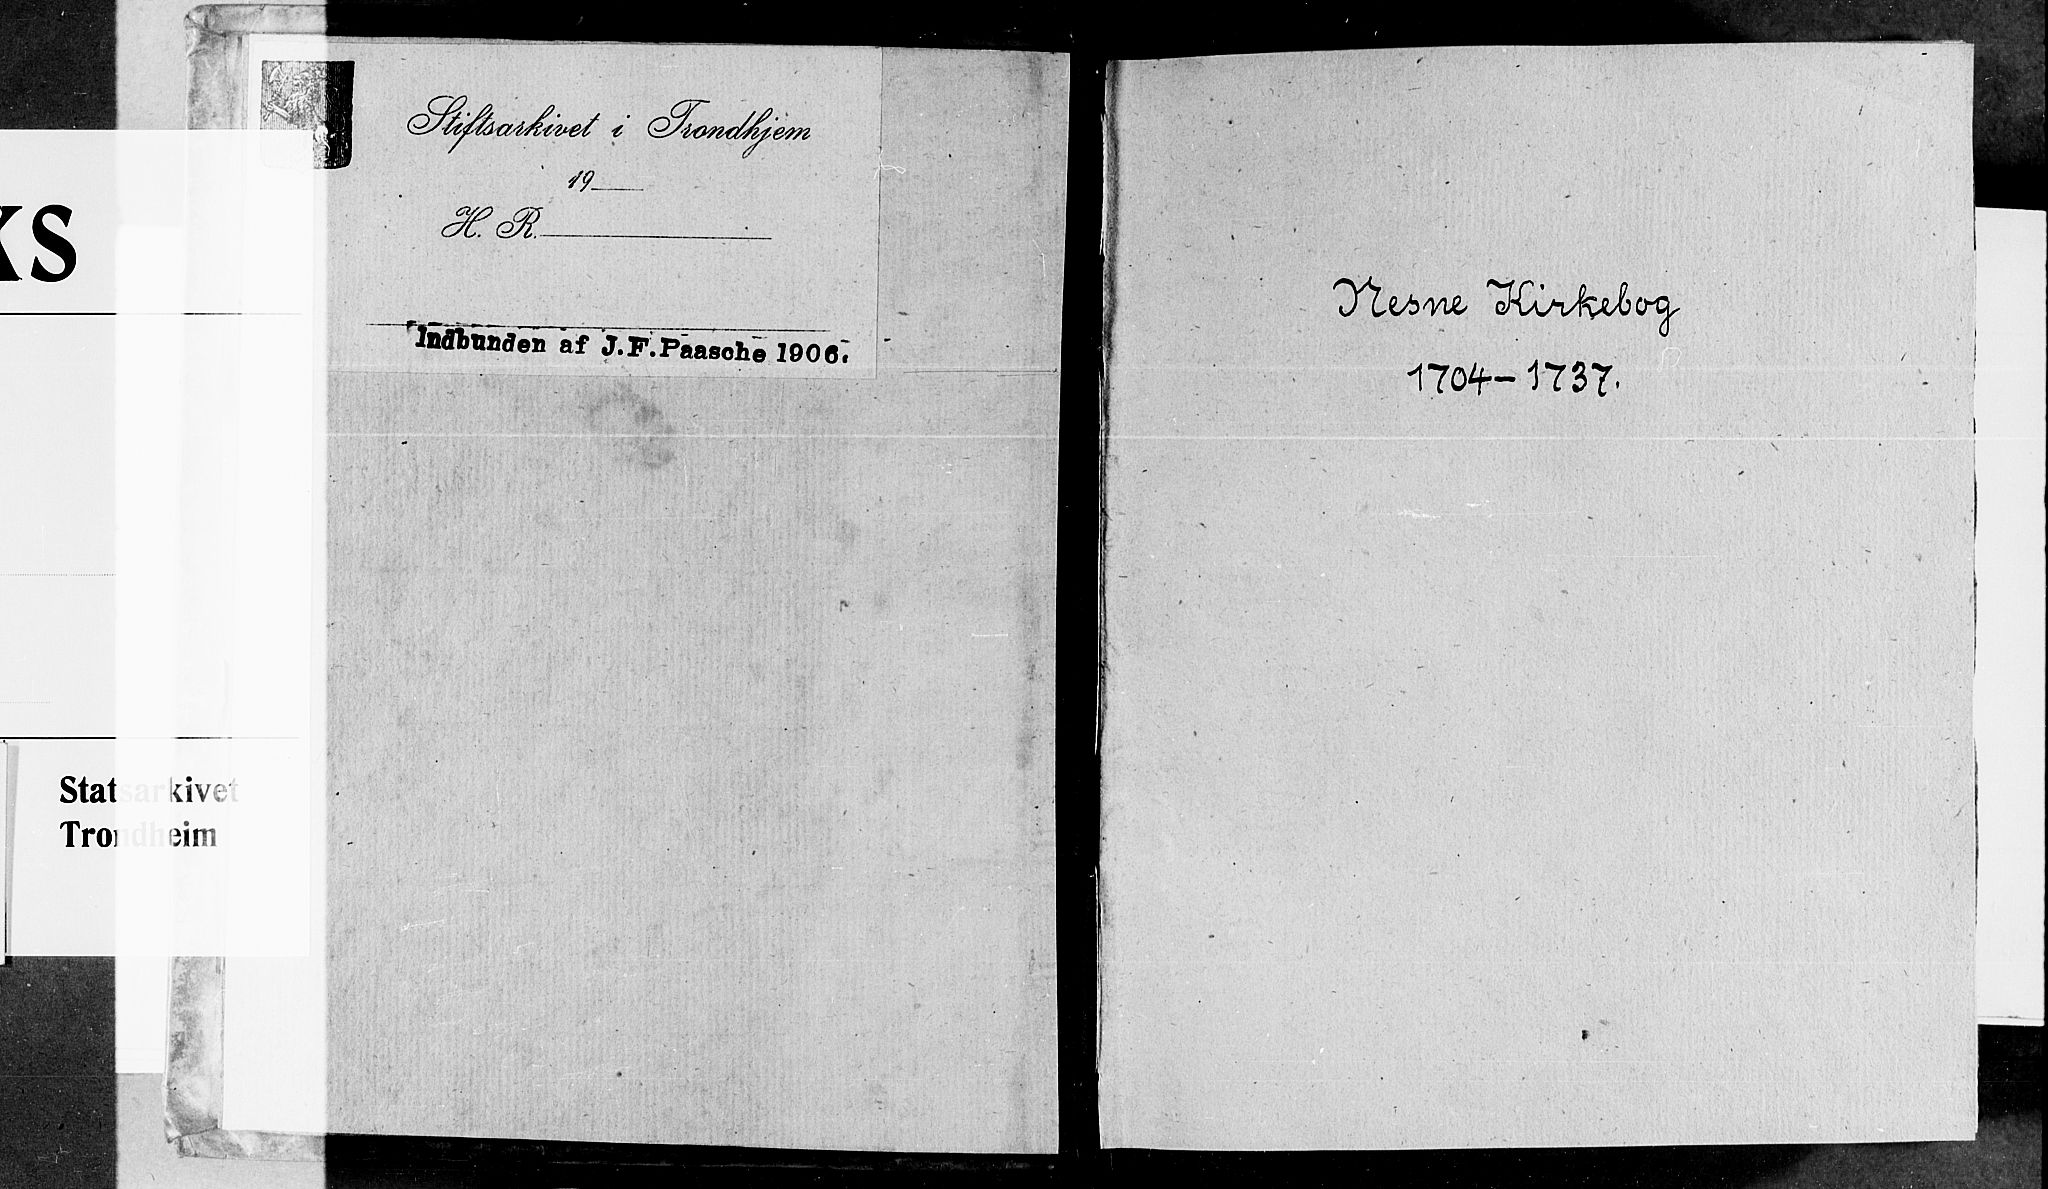 KS
Statsarkivet
Trondheim
Stiftsarkivet i Trondhjem
19
H. R.
Indbunden af J.F.Paasche 1906.
Nesne Kirkebog
1704–1737.